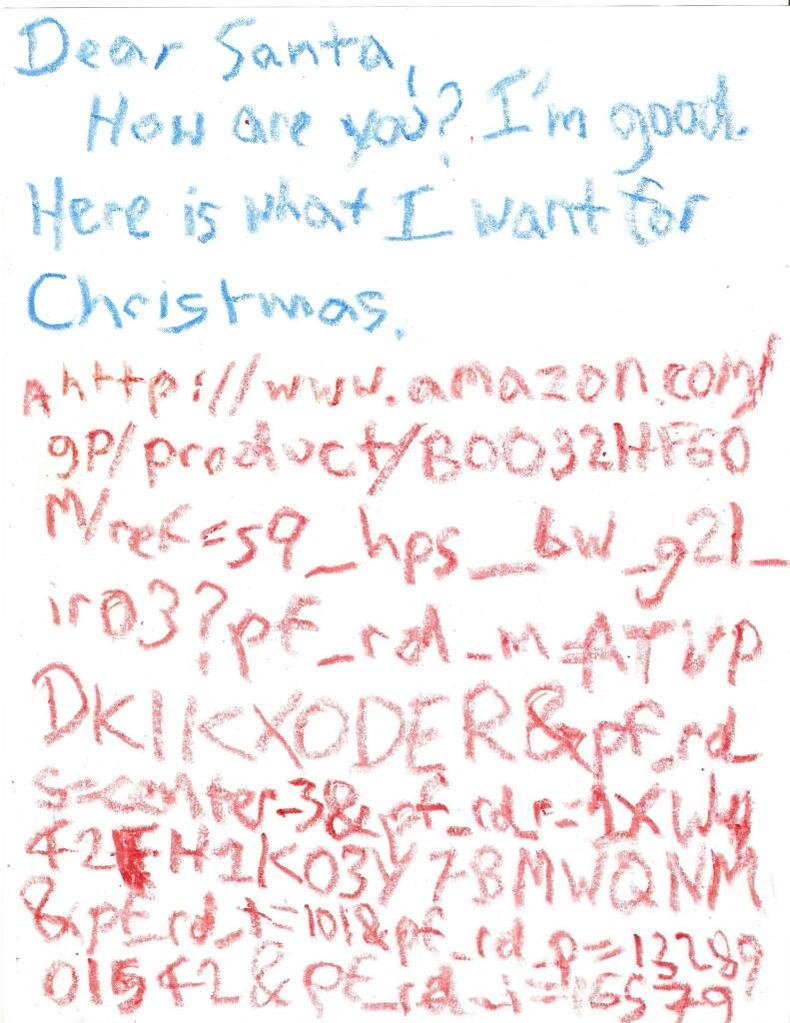 Dear Santa,
How are you? I'm good.
Here is what I want for
Christmas.
A http://www.amazon.com/
gp/product/B0032HF60
M/ref=s9_hps_bw_g21_
ir03?pf_rd_m=ATVP
DKIKX0DER&pf_rd_
s=center-3&pf_rd_r=1XWY
42FH1K03Y7BMWQNM
&pf_rd_t=101&pf_rd_p=13289
01542&pf_rd_i=16579